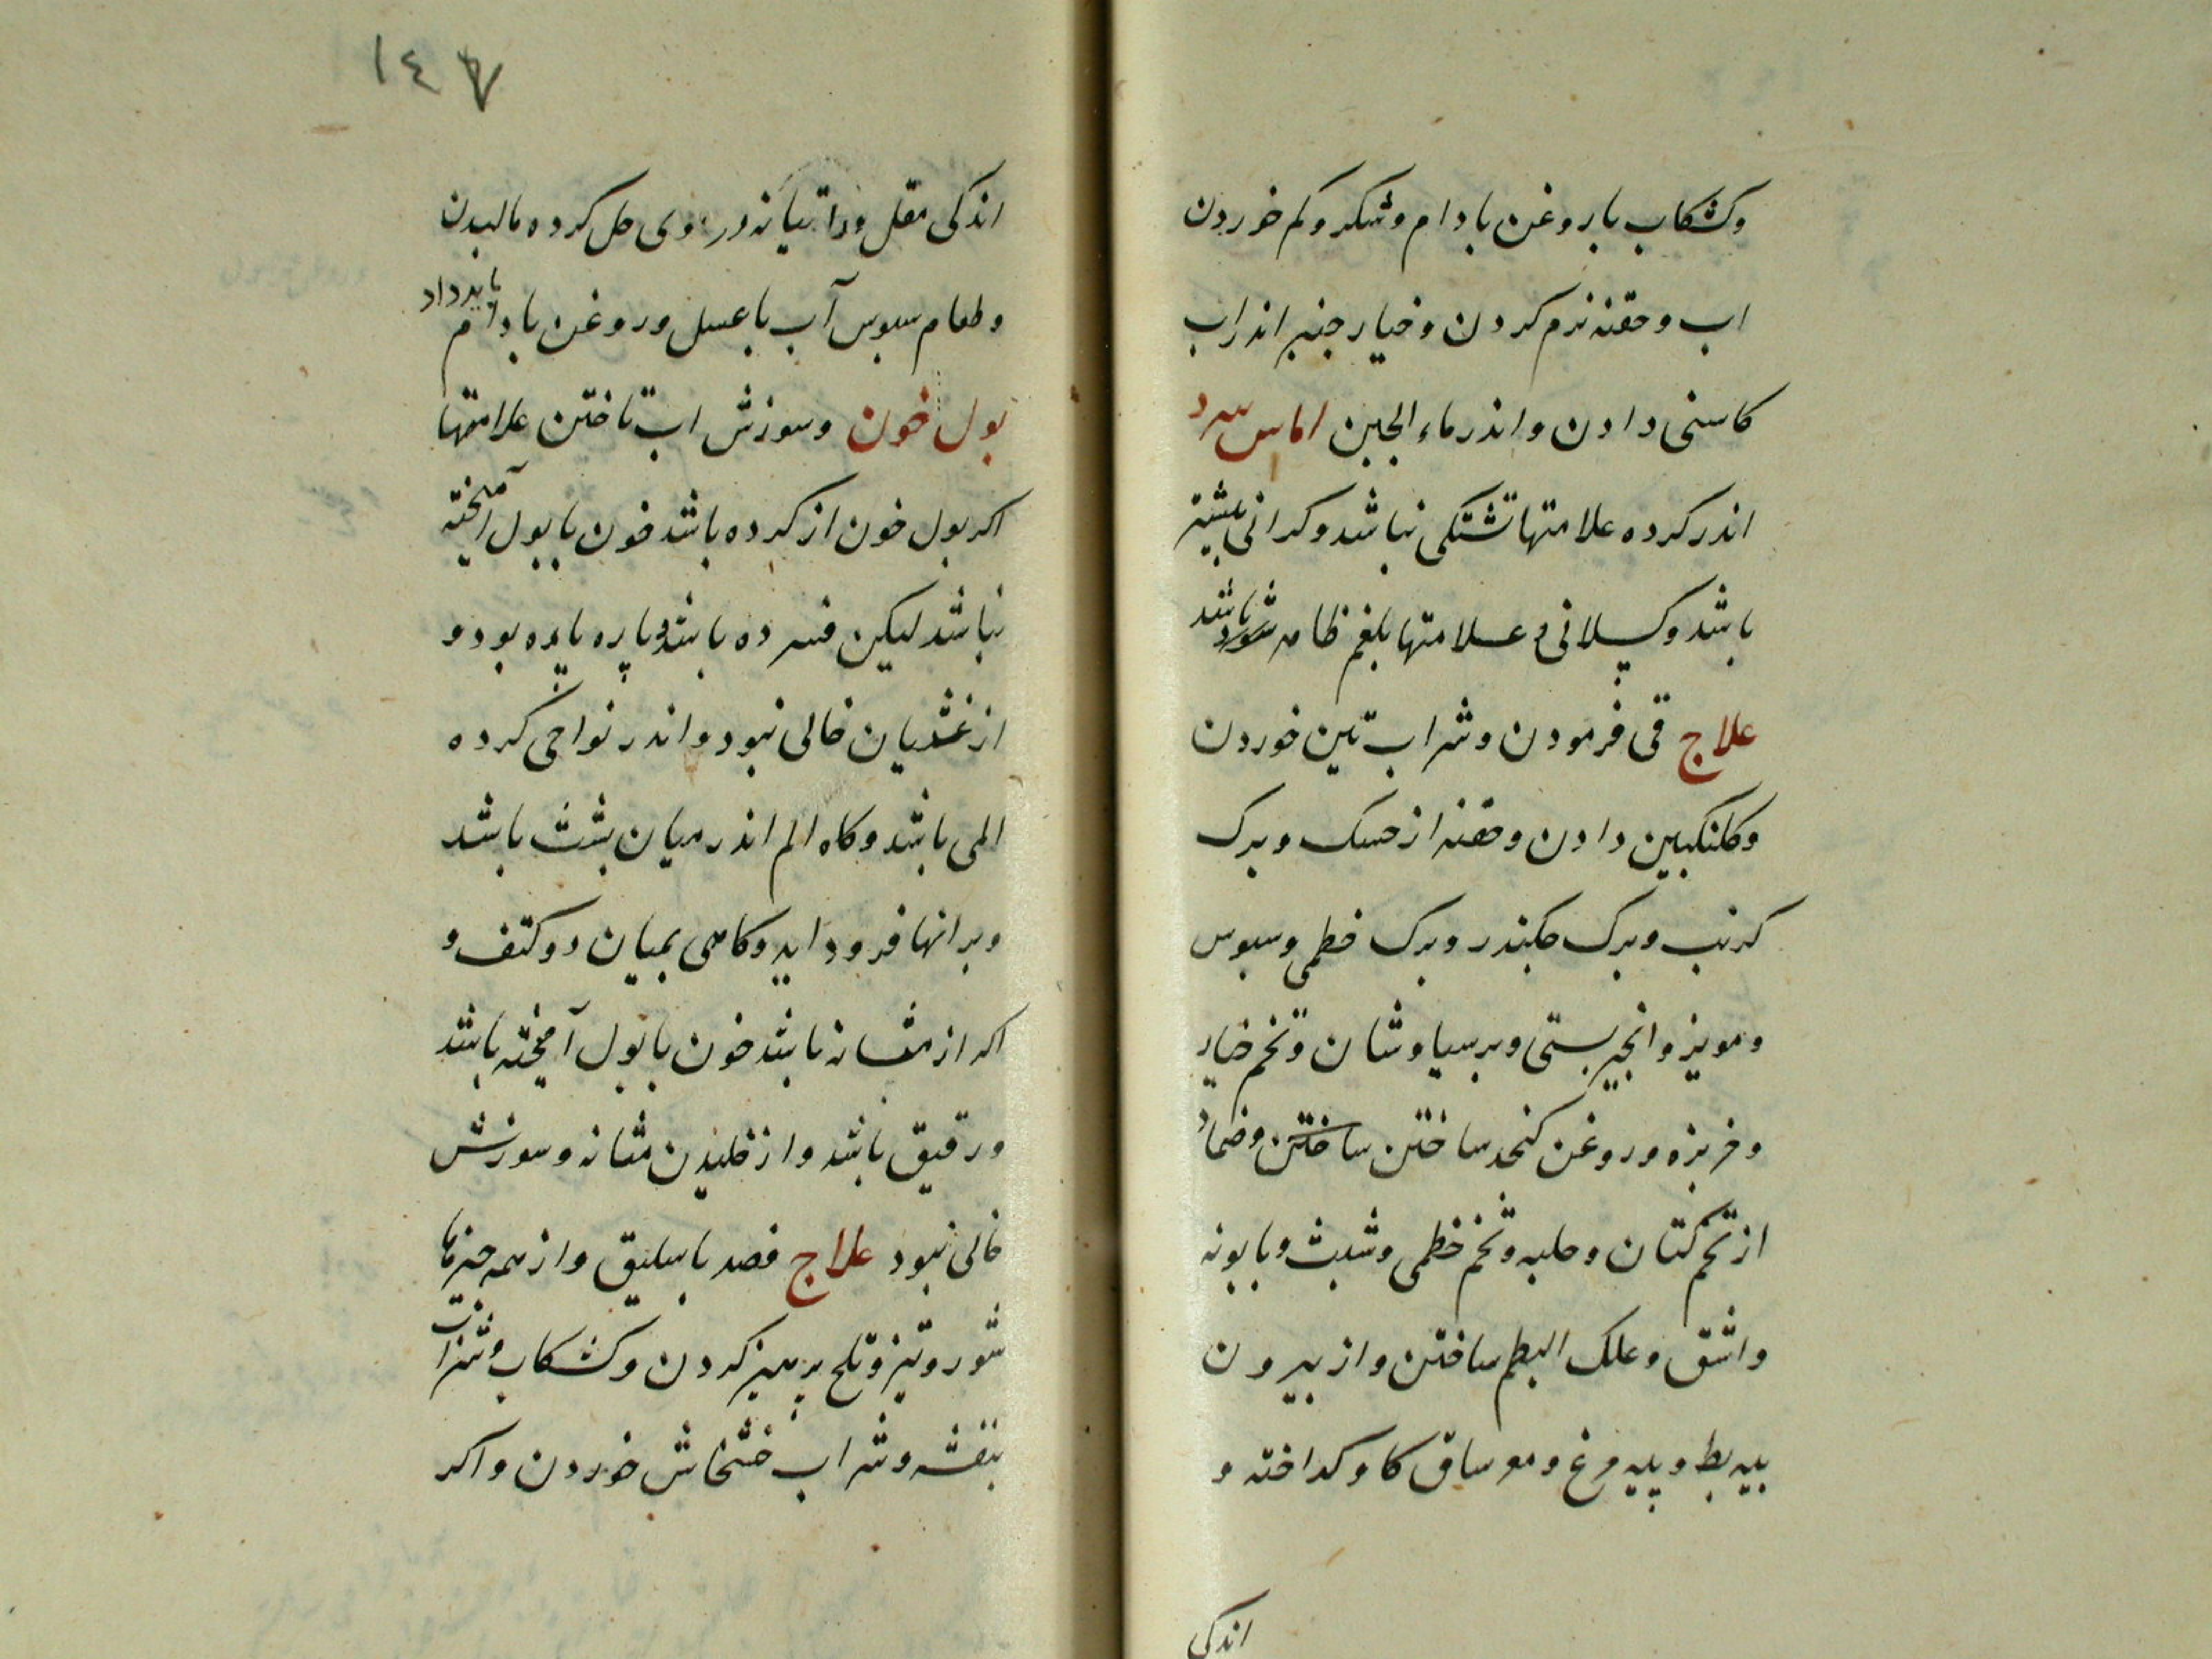 وکشکاب با روغن بادام وشکر وکم خوردن
اب وحقنه نرم کردن وخیار جنبر اندراب
کاسنی دادن واندر ماء الجبن اماس سرد
اندر کرده علامتها تشنکی نباشد وکرانی بیشتر
باشد وکسلانی وعلامتها بلغم ظاهر شود باشد
علاج قی فرمودن وشراب تین خوردن
وکلنکبین دادن وحقنه از حسک وبرک
کرنب وبرک جکندر وبرک خطمی وسبوس
ومویز وانجیر بستی وبرسیاوشان وتخم خیار
وخربزه وروغن کنجد ساختن ساختن وضماد
از تخم کتان وحلبه وتخم خطمی وشبث وبابونه
واشق وعلک البطم ساختن واز بیرون
بیه بط وپیه مرغ ومغز ساق کاو کداخته و
اندکی
١٤٧
اندکی مقل وراتیانه در وی حل کرده مالیدن
وطعام سبوس آب با عسل وروغن بادام باید داد
بول خون وسوزش اب تاختن علامتها
اکر بول خون از کرده باشد خون با بول آمیخته
نباشد لیکین فسرده باشد وپاره پاره بود و
از غشیان خالی نبود واندر نواحی کرده
المی باشد وکاه الم اندر میان بشت باشد
وبرانها فرود اید وکاهی بمیان دو کتف و
اکر از مثانه باشد خون با بول آمیخته باشد
ورقیق باشد واز خلیدن مثانه وسوزش
خالی نبود علاج فصد باسلیق واز همه جیزها
شور وتیز وتلخ پرهیز کردن وکشکاب وشراب
بنفشه وشراب خشخاش خوردن واکر